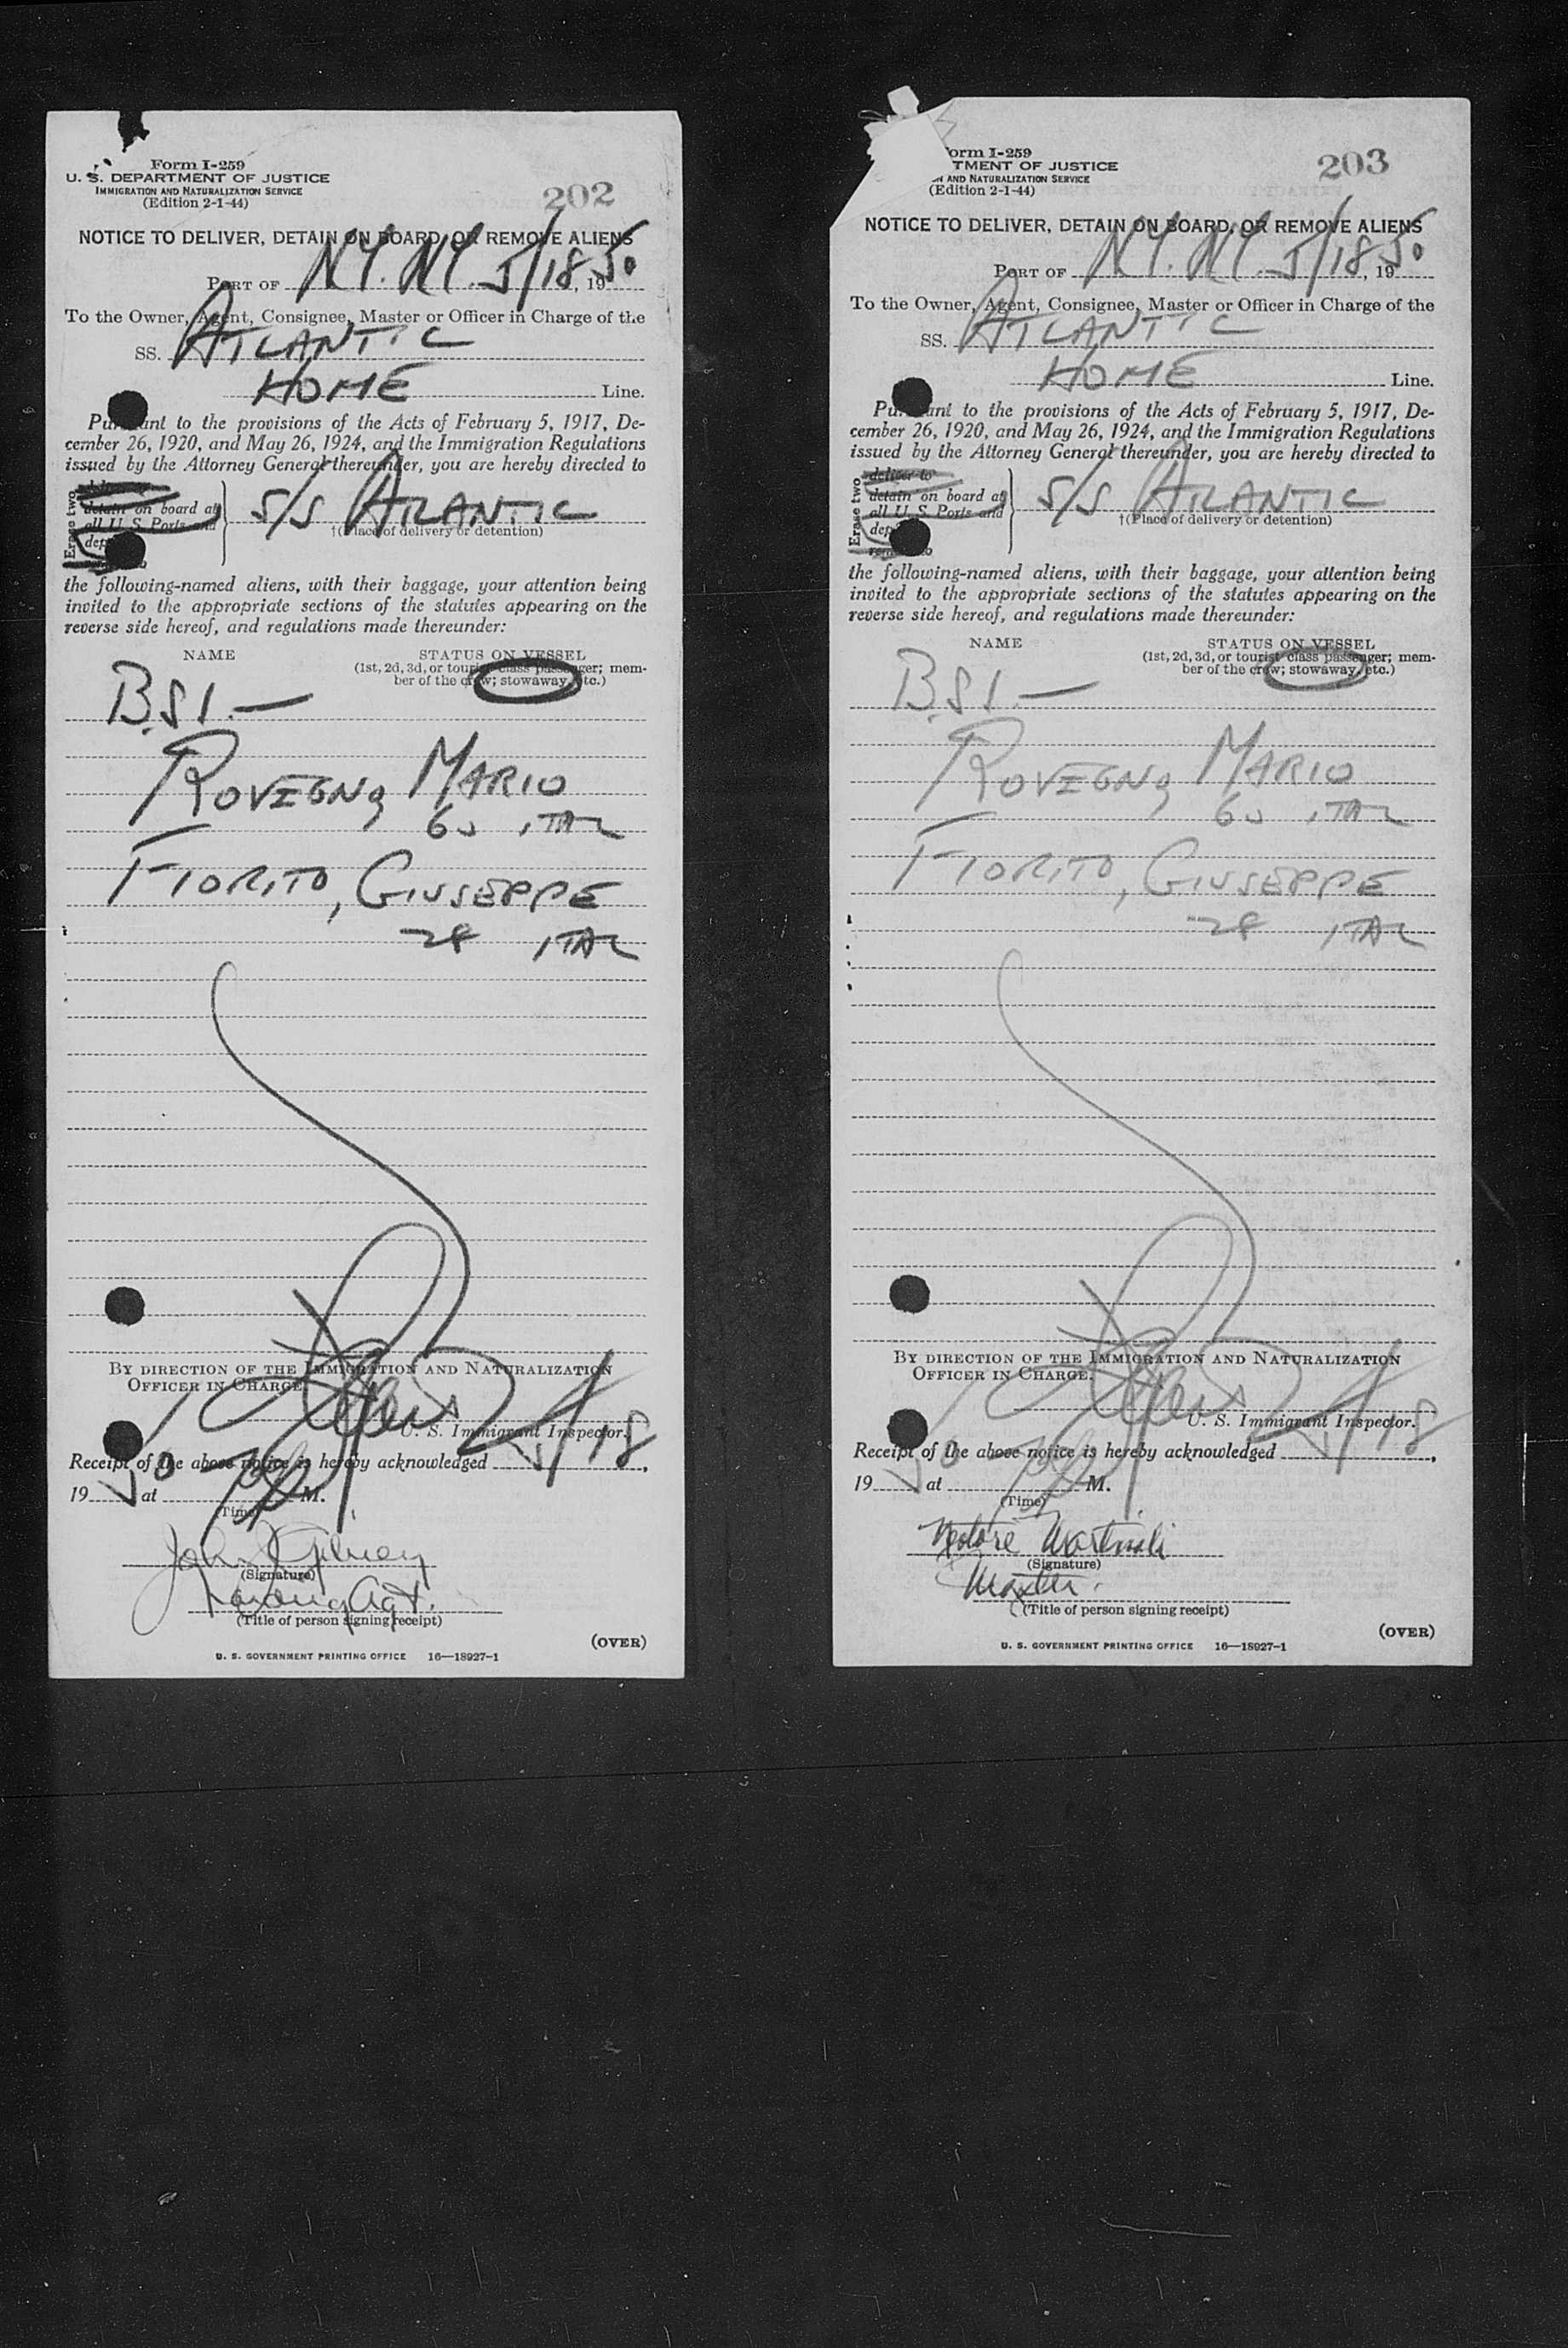 Form I-259
U. S. DEPARTMENT OF JUSTICE
IMMIGRATION AND NATURALIZATION SERVICE
(Edition 2-1-44)
202
NOTICE TO DELIVER, DETAIN ON BOARD, OR REMOVE ALIENS
PORT OF N.Y. N.Y. 5/18, 1950
To the Owner, Agent, Consignee, Master or Officer in Charge of the
SS. ATLANTIC
HOME Line.
Pursuant to the provisions of the Acts of February 5, 1917, De-
cember 26, 1920, and May 26, 1924, and the Immigration Regulations
issued by the Attorney General thereunder, you are hereby directed to
Erase two
detain on board at
all U. S. Ports and
S/S ARLANTIC
†(Place of delivery or detention)
the following-named aliens, with their baggage, your attention being
invited to the appropriate sections of the statutes appearing on the
reverse side hereof, and regulations made thereunder:
NAME
STATUS ON VESSEL
(1st, 2d, 3d, or tourist class passenger; mem-
ber of the crew; stowaway, etc.)
B.S.I. —
ROVEGNO MARIO
60 ITAL
FIORITO, GIUSEPPE
28 ITAL
BY DIRECTION OF THE IMMIGRATION AND NATURALIZATION
OFFICER IN CHARGE.
U. S. Immigrant Inspector.
Receipt of the above notice is hereby acknowledged 5/18,
1950 at M.
(Time)
John J Gilney
(Signature)
Landing Agt.
(Title of person signing receipt)
(OVER)
U. S. GOVERNMENT PRINTING OFFICE 16—18927-1
orm I-259
TMENT OF JUSTICE
AND NATURALIZATION SERVICE
(Edition 2-1-44)
203
NOTICE TO DELIVER, DETAIN ON BOARD, OR REMOVE ALIENS
PORT OF N.Y. N.Y. 5/18, 1950
To the Owner, Agent, Consignee, Master or Officer in Charge of the
SS. ATLANTIC
HOME Line.
Pursuant to the provisions of the Acts of February 5, 1917, De-
cember 26, 1920, and May 26, 1924, and the Immigration Regulations
issued by the Attorney General thereunder, you are hereby directed to
Erase two
deliver to
detain on board at
all U. S. Ports and
S/S ARLANTIC
†(Place of delivery or detention)
the following-named aliens, with their baggage, your attention being
invited to the appropriate sections of the statutes appearing on the
reverse side hereof, and regulations made thereunder:
NAME
STATUS ON VESSEL
(1st, 2d, 3d, or tourist class passenger; mem-
ber of the crew; stowaway, etc.)
B.S.I. —
ROVEGNO MARIO
60 ITAL
FIORITO, GIUSEPPE
28 ITAL
BY DIRECTION OF THE IMMIGRATION AND NATURALIZATION
OFFICER IN CHARGE.
U. S. Immigrant Inspector.
Receipt of the above notice is hereby acknowledged 5/18,
1950 at M.
(Time)
(Signature)
Master.
(Title of person signing receipt)
(OVER)
U. S. GOVERNMENT PRINTING OFFICE 16—18927-1